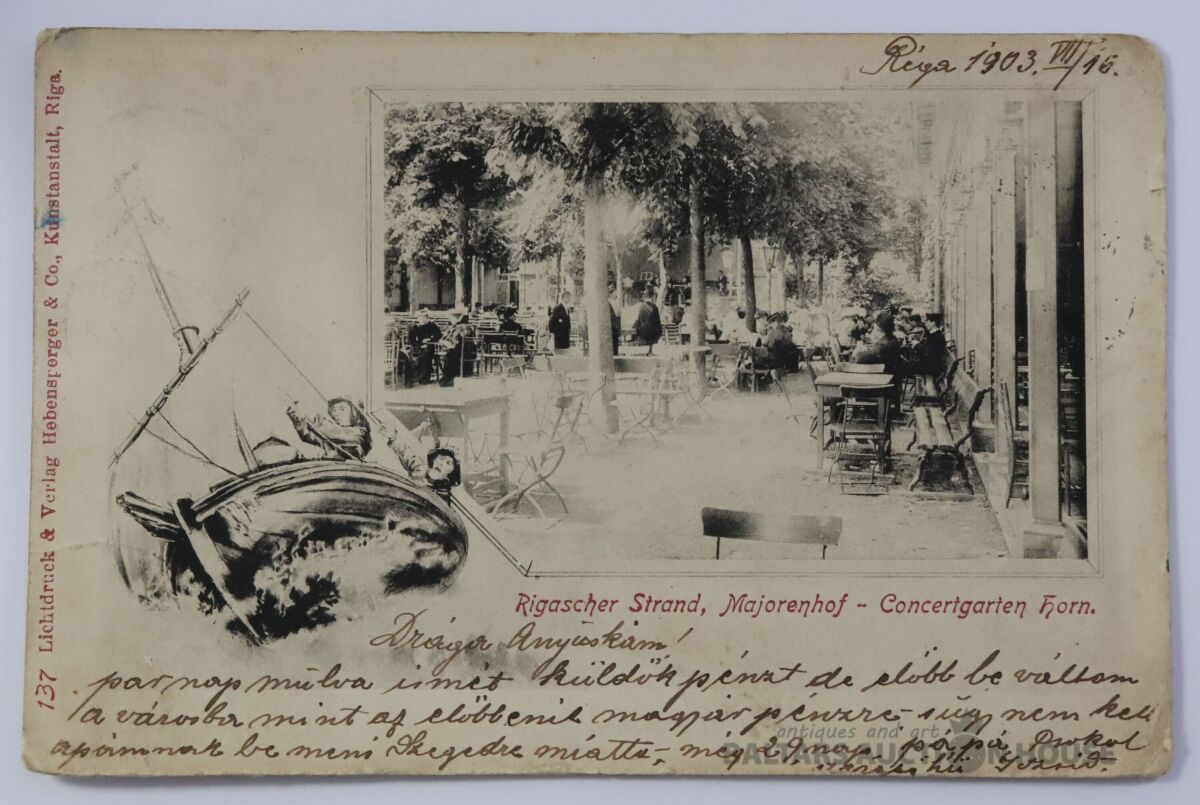 Riga 1903. VIII/16.
137 Lichtdruck & Verlag Hebensperger & Co., Kunstanstalt, Riga.
Rigascher Strand, Majorenhof - Concertgarten Horn.
Drága Anyuskám!
par nap múlva ismét küldök pénzt de előbb be váltom
a városba mint az előbbenit magyar pénzre s úgy nem kell
apámnak be meni Szegedre miatta, még 29 nap. pá, pá,
antiques and art
BALTARS AUCTION HOUSE